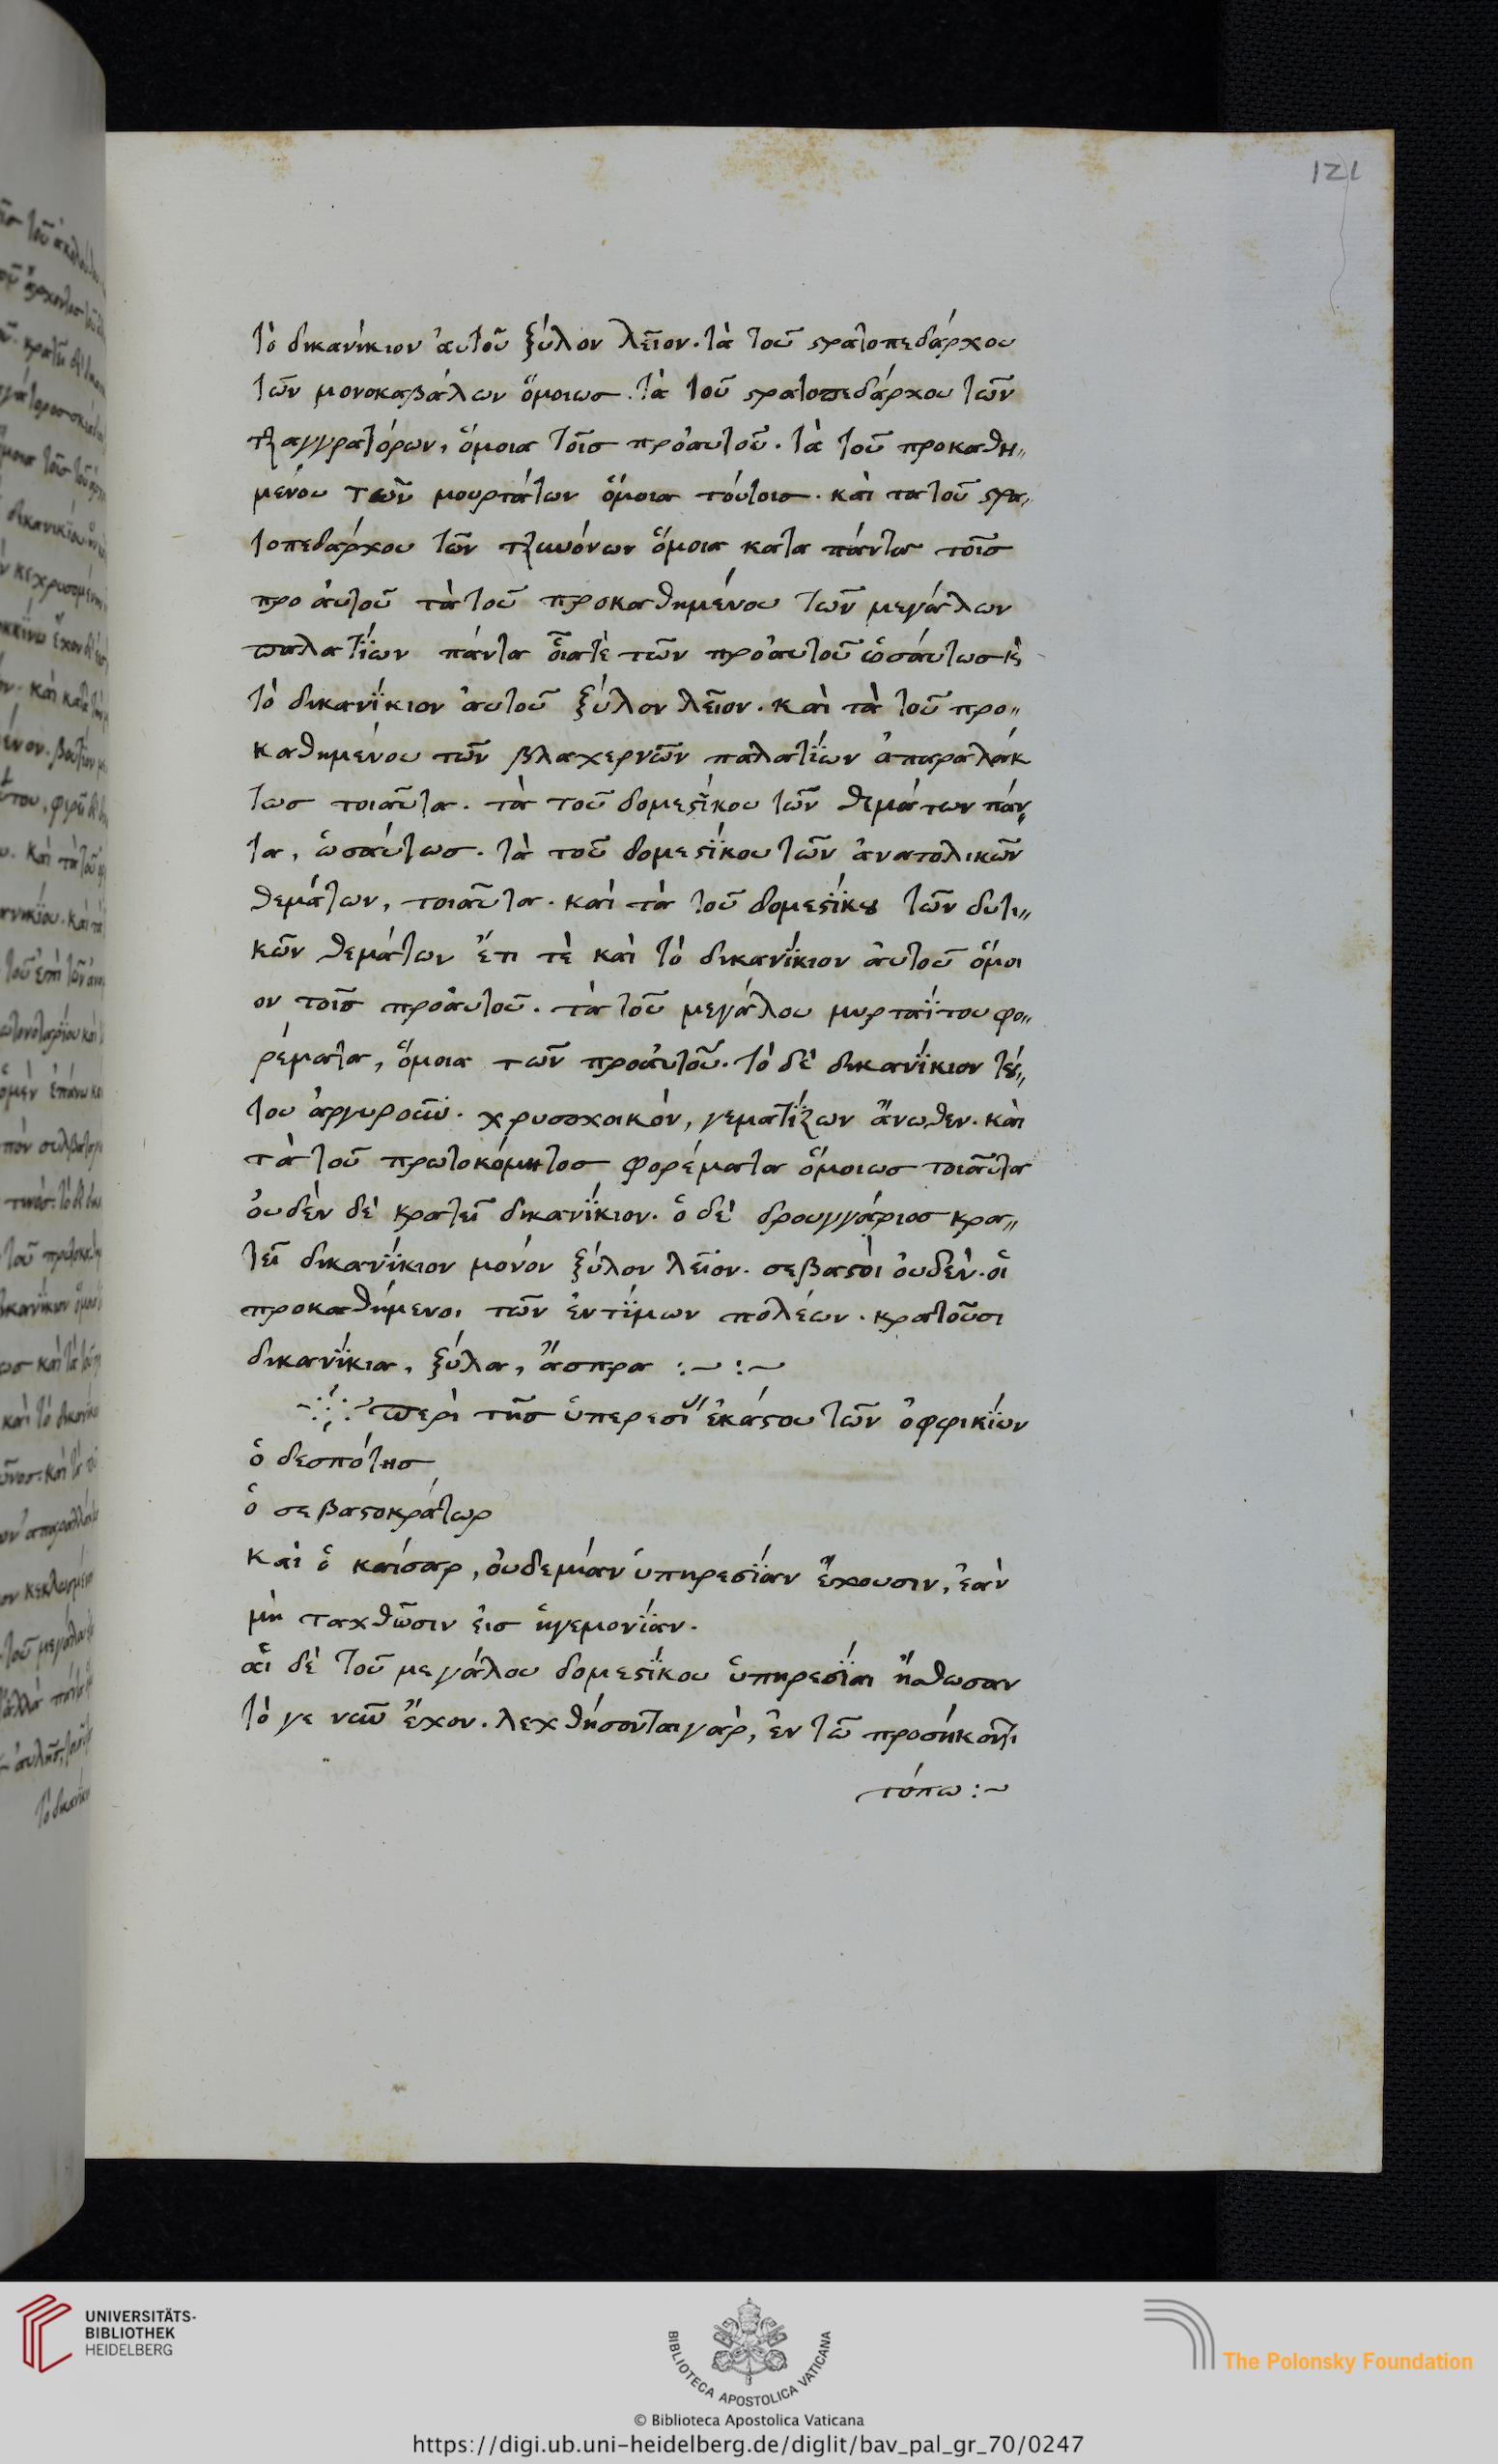 121
τὸ δικανίκιον ἀυτοῦ ξύλον λεῖον. τὰ τοῦ στρατοπεδάρχου
τῶν μονοκαβάλων ὅμοιωσ. τὰ τοῦ στρατοπεδάρχου τῶν
τζαγγρατόρων, ὅμοια τοῖσ πρὀαυτοῦ. τὰ τοῦ προκαθη„
μένου τῶν μουρτάτων ὅμοια τούτοισ. καὶ τα τοῦ στρα„
τοπεδάρχου τῶν τζακόνων ὅμοια κατα πάντα τοῖσ
προ ἀυτοῦ τὰ τοῦ προκαθημένου τῶν μεγάλων
παλατΐων πάντα οἷατὲ τῶν πρὀαυτοῦ ὡσάυτωσ κὶ
τὸ δικανΐκιον ἀυτοῦ ξύλον λεῖον. καὶ τὰ τοῦ προ„
καθημένου τῶν βλαχερνῶν παλατΐων ἀπαραλάκ
τωσ τοιαῦτα. τὰ τοῦ δομεστίκου τῶν θεμάτων πάν„
τα, ὡσάυτωσ. τὰ τοῦ δομεστίκου τῶν ἀνατολικῶν
θεμάτων, τοιαῦτα. καὶ τὰ τοῦ δομεστίκου τῶν δυτι„
κῶν θεμάτων ἔτι τὲ καὶ τὸ δικανΐκιον ἀυτοῦ ὅμοι
ον τοῖσ προἀυτοῦ. τὰ τοῦ μεγάλου μυρταΐτου φο„
ρέματα, ὅμοια τῶν προἀυτοῦ. τὸ δὲ δικανΐκιον τού„
του ἀργυροῦν. χρυσοχοικόν, γεματΐζων ἄνωθεν. καὶ
τὰ τοῦ πρωτοκόμητοσ φορέματα ὅμοιωσ τοιαῦτα
ὀυδὲν δὲ κρατεῖ δικανΐκιον. ὁ δὲ δρουγγάριοσ κρα„
τεῖ δικανΐκιον μονόν ξύλον λεῖον. σεβαστὸι ὀυδὲν. οἱ
προκαθήμενοι τῶν ἐντΐμων πόλέων. κρατοῦσι
δικανΐκια, ξύλα, ἄσπρα :~ :~
περὶ τῆσ ὑπερεσί ἑκάστου τῶν ὀφφικΐων
ὁ δεσπότησ
ὁ σεβαστοκράτωρ
καὶ ὁ καίσαρ, ὀυδεμίαν ὑπηρεσΐαν ἔχουσιν, ἐὰν
μὴ ταχθῶσιν ἐισ ἡγεμονΐαν.
αἱ δὲ τοῦ μεγάλου δομεστίκου ὑπηρεσΐαι ἤαθωσαν
τό γε νῦν ἔχον. λεχθήσονται γὰρ, ἐν τῶ προσήκοντι
τόπω :~
UNIVERSITÄTS-
BIBLIOTHEK
HEIDELBERG
BIBLIOTECA APOSTOLICA VATICANA
The Polonsky Foundation
© Biblioteca Apostolica Vaticana
https://digi.ub.uni-heidelberg.de/diglit/bav_pal_gr_70/0247